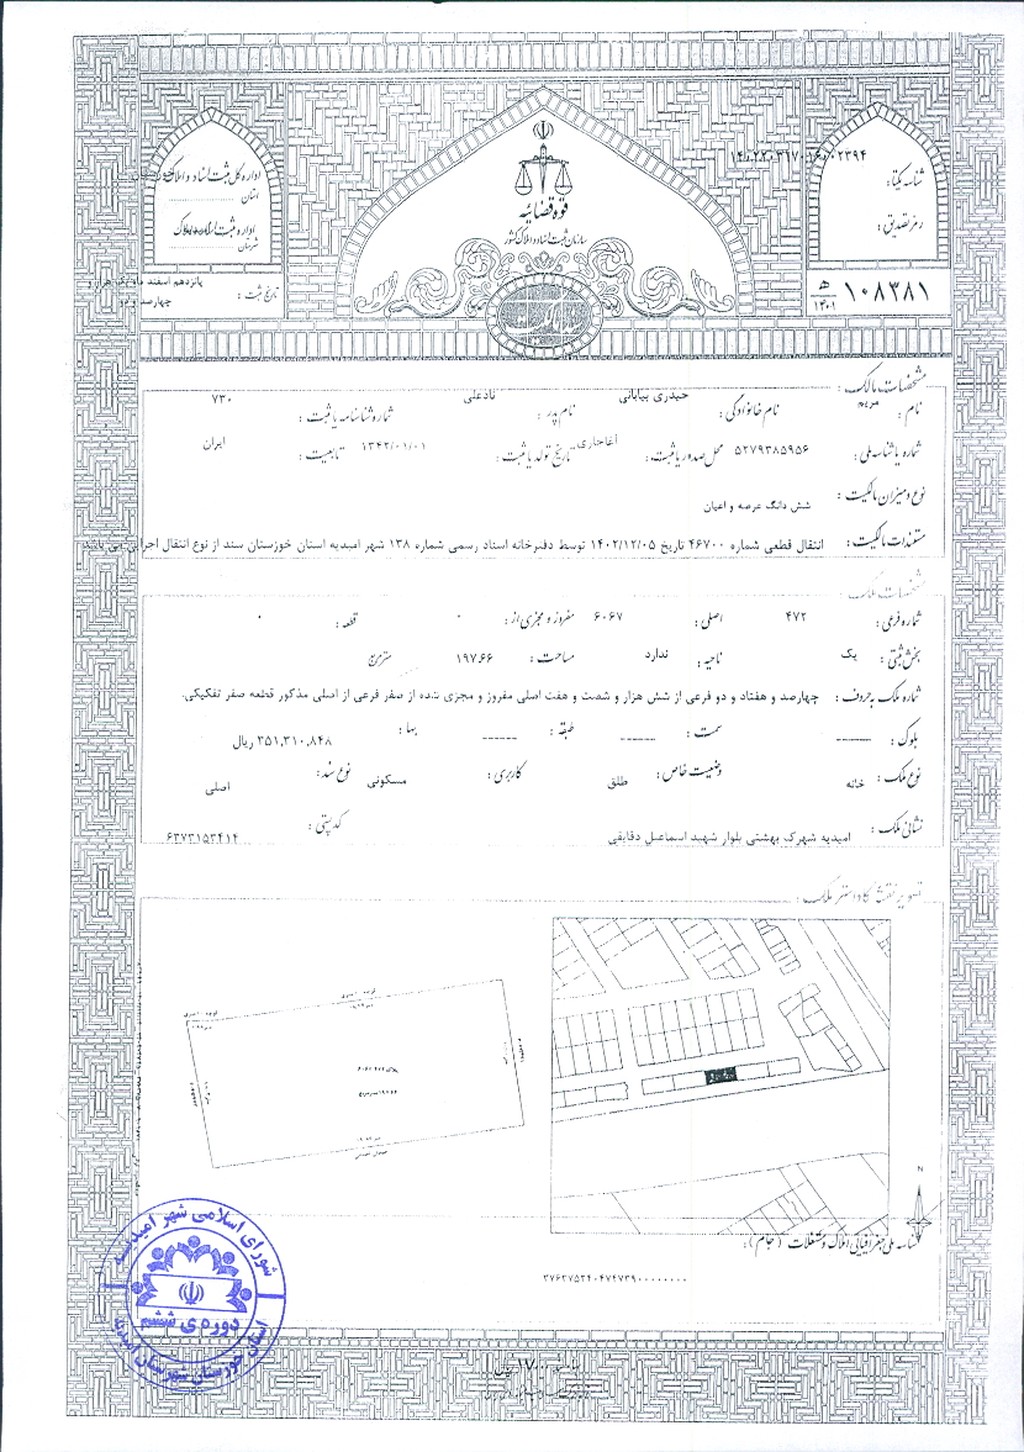 قوه قضائیه
سازمان ثبت اسناد و املاک کشور
شناسه یکتا:
رمز تصدیق:
۱۰۸۳۸۱
ه‍
۱۴۰۱
اداره کل ثبت اسناد و املاک
استان
اداره ثبت اسناد و املاک
شهرستان
تاریخ ثبت :
پانزدهم اسفند
مشخصات مالک :
نام : مریم نام خانوادگی : حیدری بیابانی نام پدر : نادعلی شماره شناسنامه یا ثبت : ۷۳۰
شماره یا شناسه ملی : ۵۲۷۹۳۸۵۹۵۶ محل صدور یا ثبت : آغاجاری تاریخ تولد یا ثبت : ۱۳۴۲/۰۱/۰۱ تابعیت : ایران
نوع و میزان مالکیت : شش دانگ عرصه و اعیان
مستندات مالکیت : انتقال قطعی شماره ۴۶۷۰۰ تاریخ ۱۴۰۲/۱۲/۰۵ توسط دفترخانه اسناد رسمی شماره ۱۳۸ شهر امیدیه استان خوزستان سند از نوع انتقال اجرایی می باشد
مشخصات ملک :
شماره فرعی : ۴۷۲ اصلی : ۶۰۶۷ مفروز و مجزی از : ۰ قطعه : ۰
بخش ثبتی : یک ناحیه : ندارد مساحت : ۱۹۷.۶۶ مترمربع
شماره ملک به حروف : چهارصد و هفتاد و دو فرعی از شش هزار و شصت و هفت اصلی مفروز و مجزی شده از صفر فرعی از اصلی مذکور قطعه صفر تفکیکی.
بلوک : ------ سمت : ------ طبقه : ------ بها : ۳۵۱,۳۱۰,۸۴۸ ریال
نوع ملک : خانه وضعیت خاص : طلق کاربری : مسکونی نوع سند : اصلی
نشانی ملک : امیدیه شهرک بهشتی بلوار شهید اسماعیل دقایقی کد پستی : ۶۳۷۳۱۵۳۴۱۴
تصویر نقشه کاداستر ملک :
N
شناسه ملی جغرافیایی املاک و مستغلات (جام) :
شورای اسلامی شهر امیدیه
دوره ی ششم
استان خوزستان شهرستان امیدیه